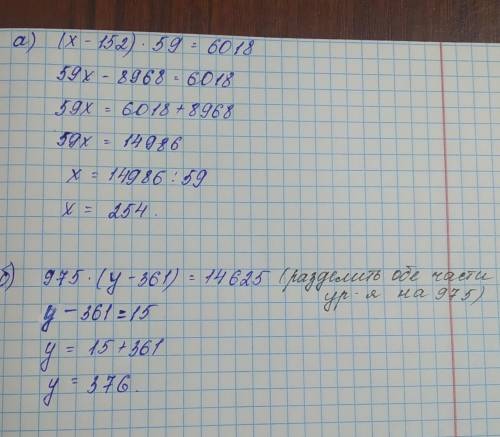 а) (x - 152) · 59 = 6018
59x - 8968 = 6018
59x = 6018 + 8968
59x = 14986
x = 14986 : 59
x = 254.
б) 975 · (y - 361) = 14625 (разделить обе части
ур-я на 975)
y - 361 = 15
y = 15 + 361
y = 376.